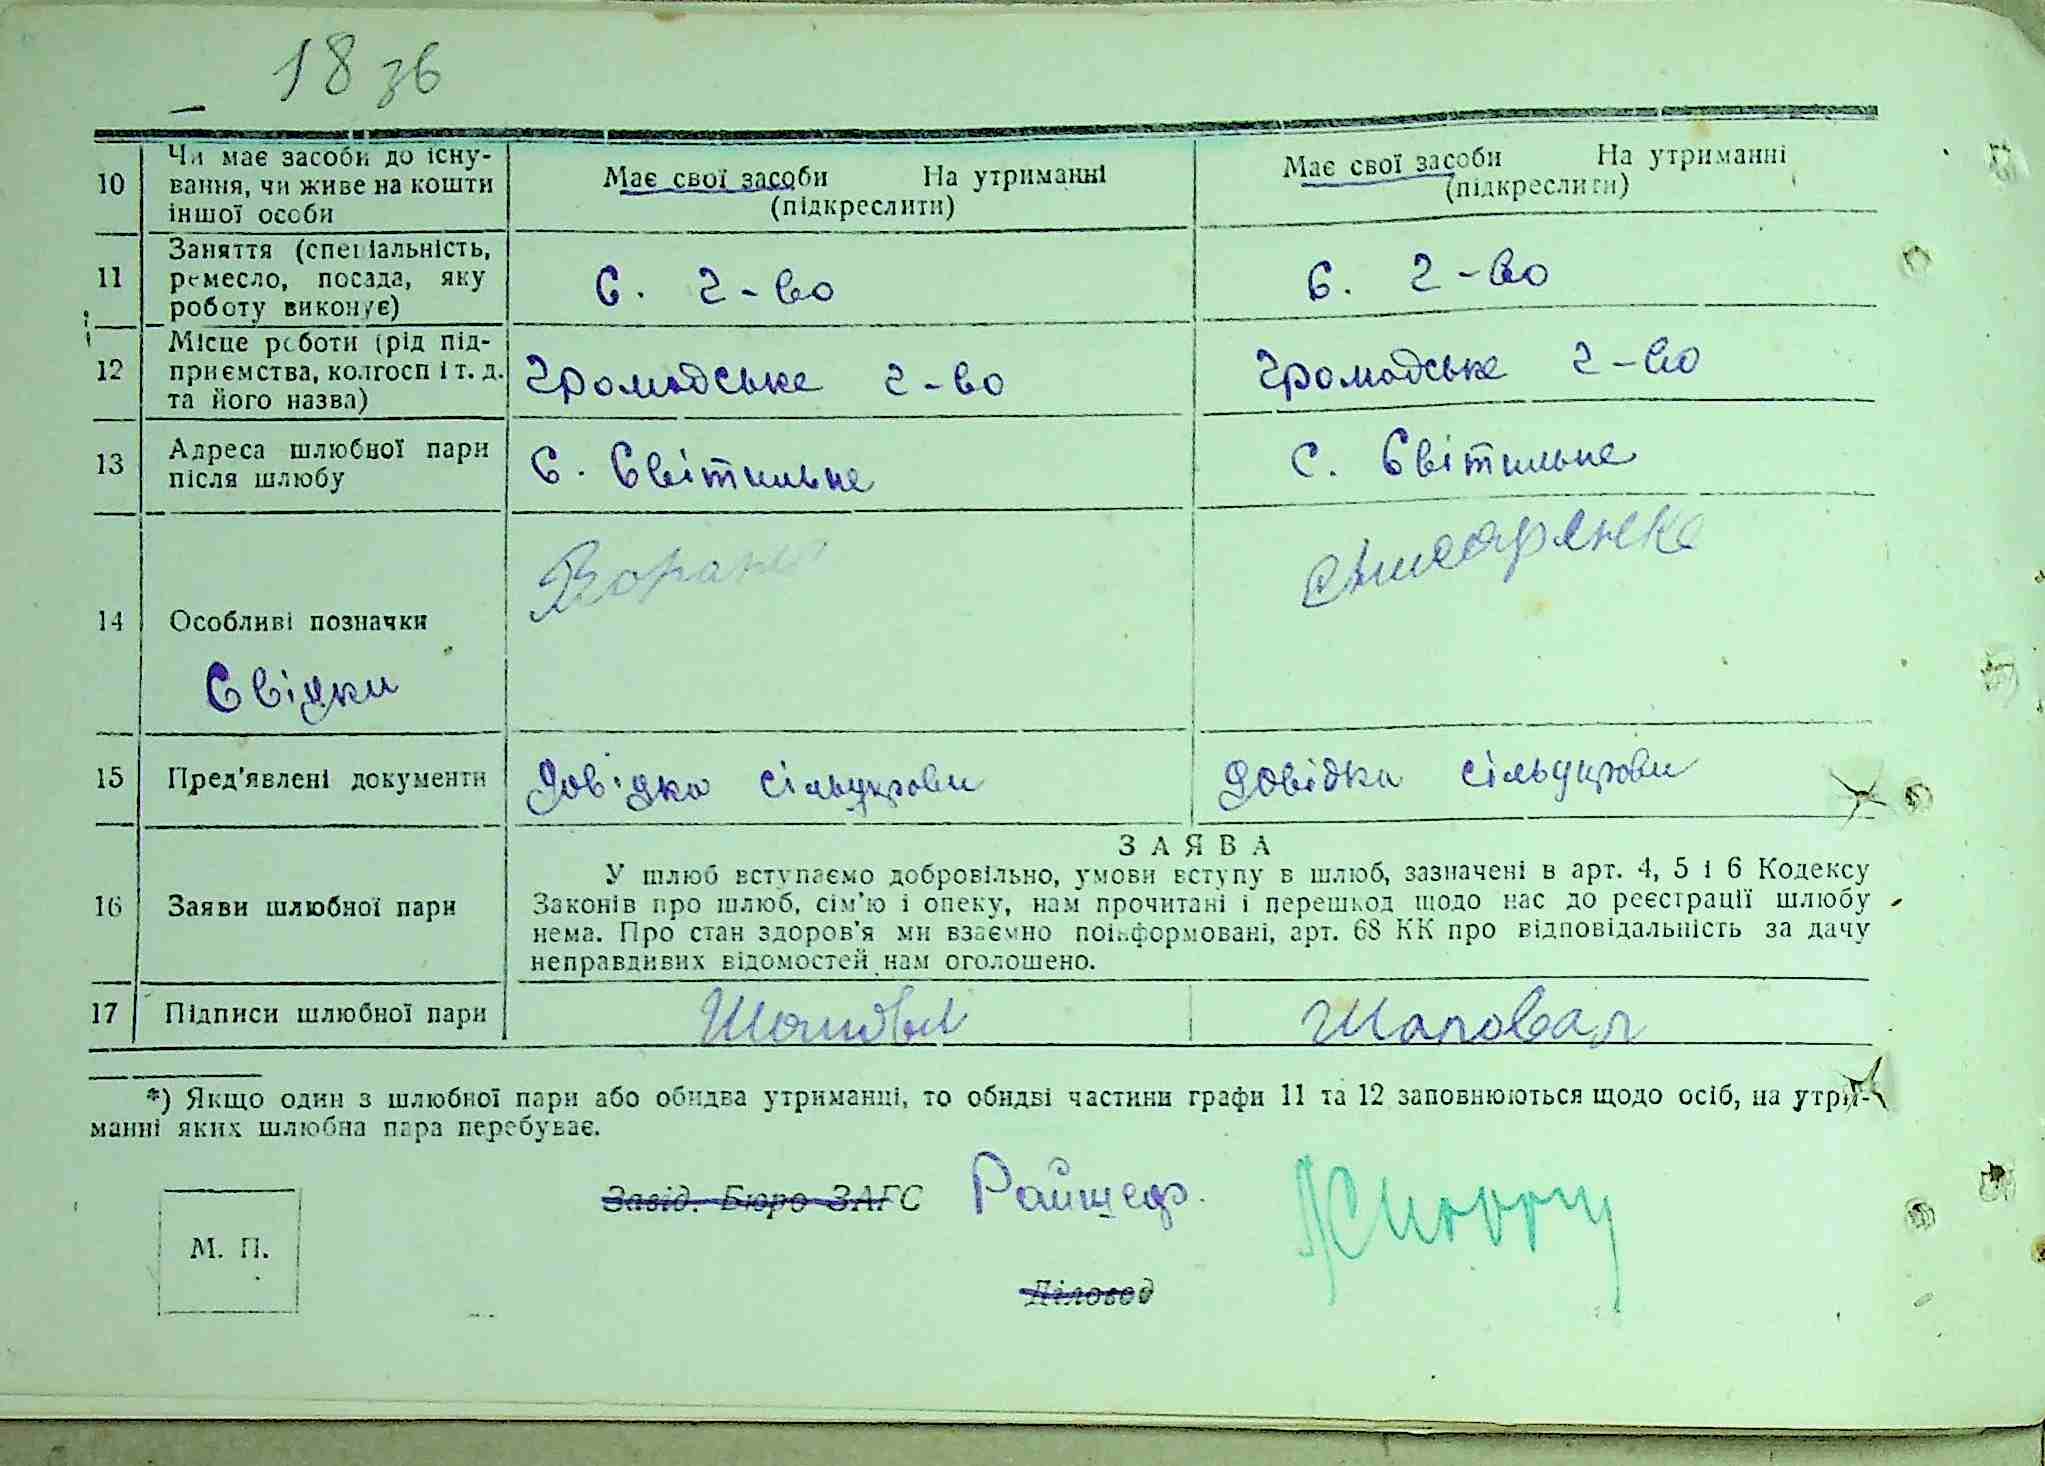 18 зв
10 Чи має засоби до існу- Має свої засоби На утриманні Має свої засоби На утриманні
вання, чи живе на кошти (підкреслити) (підкреслити)
іншої особи
11 Заняття (спеціальність, С. г-во С. г-во
ремесло, посада, яку
роботу виконує)
12 Місце роботи (рід під- Громадське г-во Громадське г-во
приємства, колгосп і т. д.
та його назва)
13 Адреса шлюбної пари С. Світильне С. Світильне
після шлюбу
14 Особливі позначки
Свідки
15 Пред'явлені документи Довідка сільуправи Довідка сільуправи
ЗАЯВА
16 Заяви шлюбної пари У шлюб вступаємо добровільно, умови вступу в шлюб, зазначені в арт. 4, 5 і 6 Кодексу
Законів про шлюб, сім'ю і опеку, нам прочитані і перешкод щодо нас до реєстрації шлюбу
нема. Про стан здоров'я ми взаємно поінформовані, арт. 68 КК про відповідальність за дачу
неправдивих відомостей нам оголошено.
17 Підписи шлюбної пари Шаповал Шаповал
*) Якщо один з шлюбної пари або обидва утриманці, то обидві частини графи 11 та 12 заповнюються щодо осіб, на утри-
манні яких шлюбна пара перебуває.
Завід. Бюро ЗАГС Райшеф
М. П.
Діловод